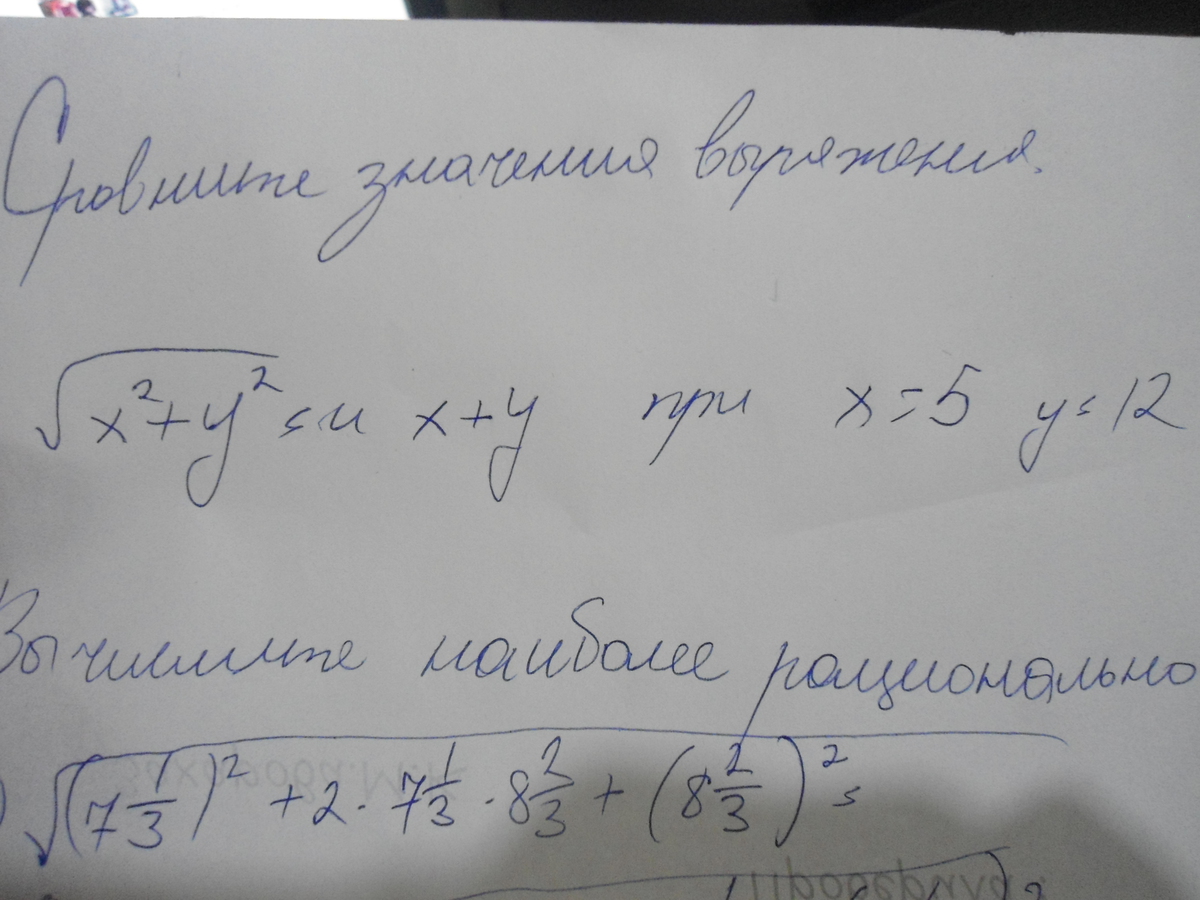 Сравните значения выражения.
√x²+y² = и x+y при x=5 y=12
Вычислите наиболее рационально
) √(7 1/3)² + 2 · 7 1/3 · 8 2/3 + (8 2/3)² =